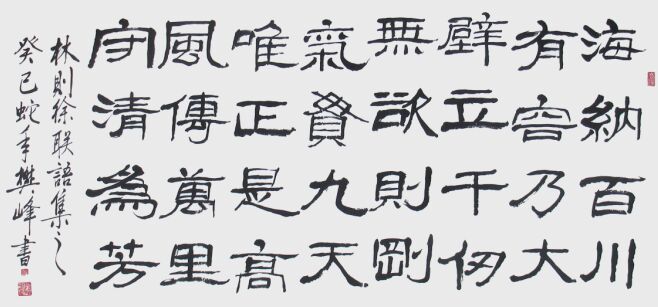 海納百川
有容乃大
壁立千仞
無欲則剛
氣貫九天
唯正是高
風傳萬里
守清為芳
林則徐联語集之
癸巳蛇年樊峰書